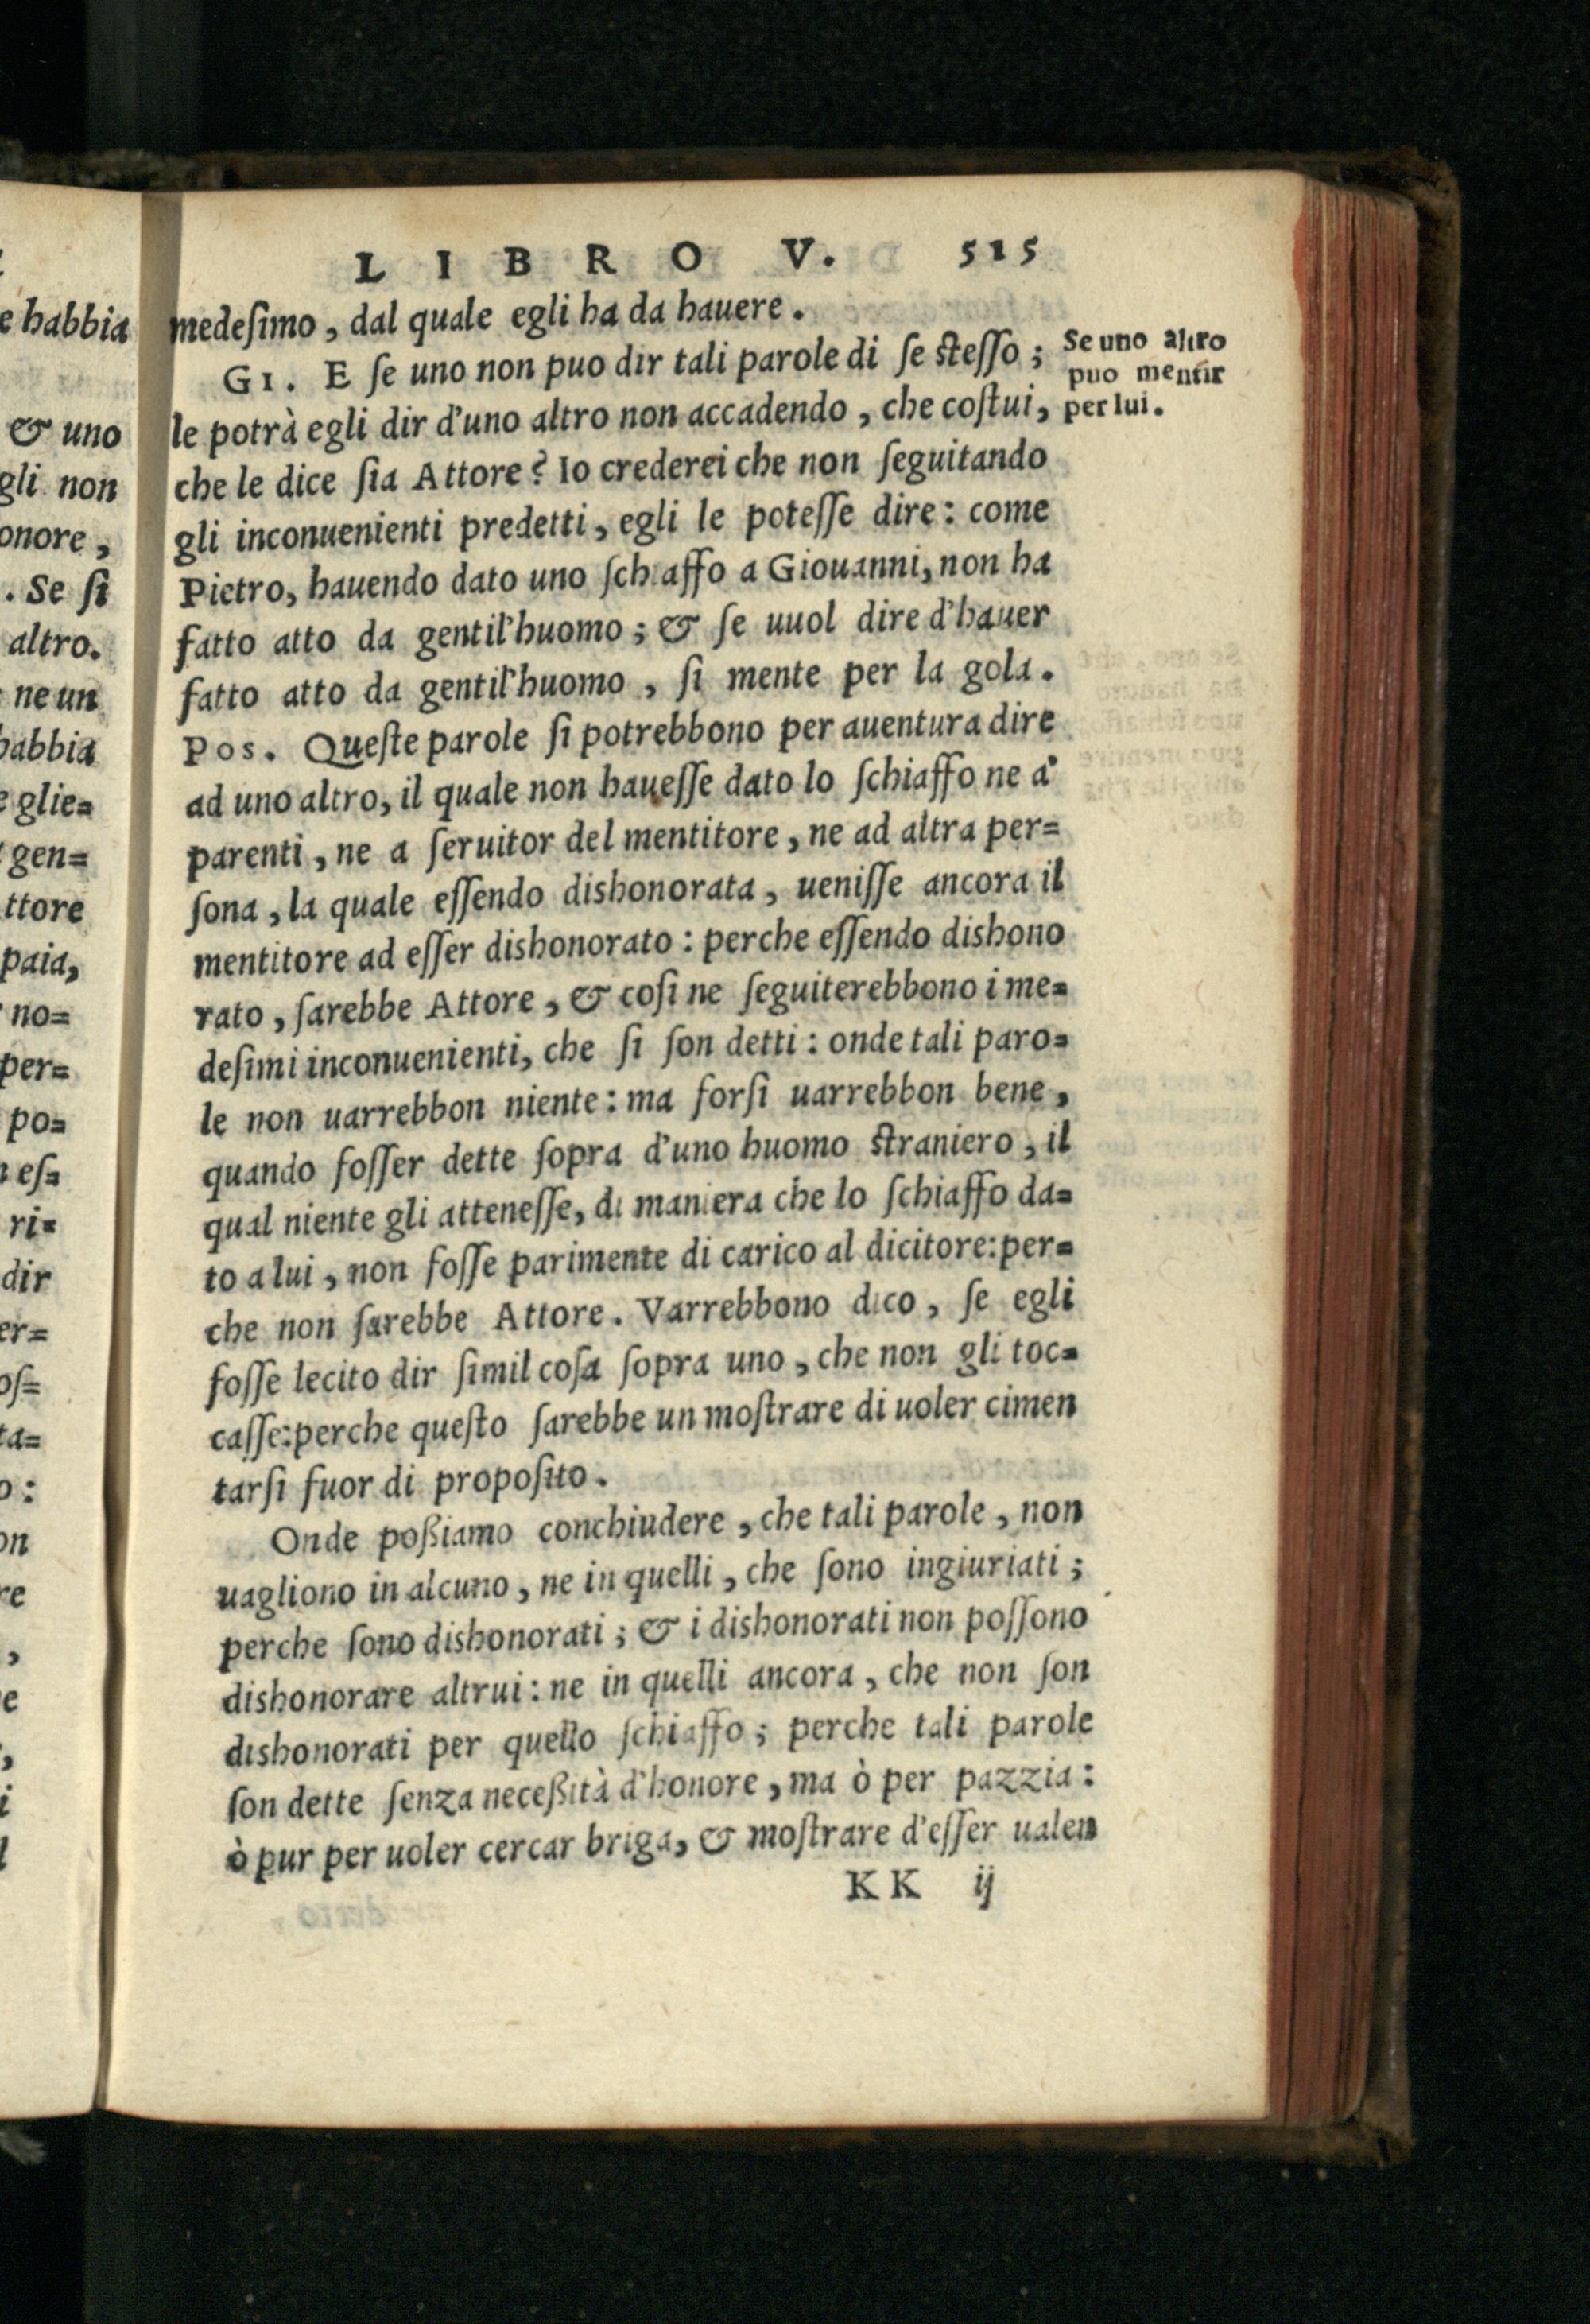 LIBRO V. 515
medeſimo, dal quale egli ha da hauere.
GI. E ſe uno non puo dir tali parole di ſe steſſo;
le potrà egli dir d'uno altro non accadendo, che coſtui,
che le dice ſia Attore? Io crederei che non ſeguitando
gli inconuenienti predetti, egli le poteſſe dire: come
Pietro, hauendo dato uno ſchiaffo a Giouanni, non ha
fatto atto da gentil'huomo; & ſe uuol dire d'hauer
fatto atto da gentil'huomo, ſi mente per la gola.
Pos. Queſte parole ſi potrebbono per auentura dire
ad uno altro, il quale non haueſſe dato lo ſchiaffo ne a'
parenti, ne a ſeruitor del mentitore, ne ad altra per=
ſona, la quale eſſendo dishonorata, ueniſſe ancora il
mentitore ad eſſer dishonorato: perche eſſendo dishono
rato, ſarebbe Attore, & coſi ne ſeguiterebbono i me=
deſimi inconuenienti, che ſi ſon detti: onde tali paro=
le non uarrebbon niente: ma forſi uarrebbon bene,
quando foſſer dette ſopra d'uno huomo straniero, il
qual niente gli atteneſſe, di maniera che lo ſchiaffo da=
to a lui, non foſſe parimente di carico al dicitore: per=
che non ſarebbe Attore. Varrebbono dico, ſe egli
foſſe lecito dir ſimil coſa ſopra uno, che non gli toc=
caſſe: perche queſto ſarebbe un moſtrare di uoler cimen
tarſi fuor di propoſito.
Onde poßiamo conchiudere, che tali parole, non
uagliono in alcuno, ne in quelli, che ſono ingiuriati;
perche ſono dishonorati; & i dishonorati non poſſono
dishonorare altrui: ne in quelli ancora, che non ſon
dishonorati per quello ſchiaffo; perche tali parole
ſon dette ſenza neceßità d'honore, ma ò per pazzia:
ò pur per uoler cercar briga, & moſtrare d'eſſer ualen
KK ij
Se uno altro
puo mentir
per lui.
e habbia
& uno
gli non
onore,
. Se ſi
altro.
ne un
habbia
e glie=
gen=
ttore
paia,
no=
per=
po=
eſ=
ri=
dir
er=
oſ=
ta=
o:
on
re